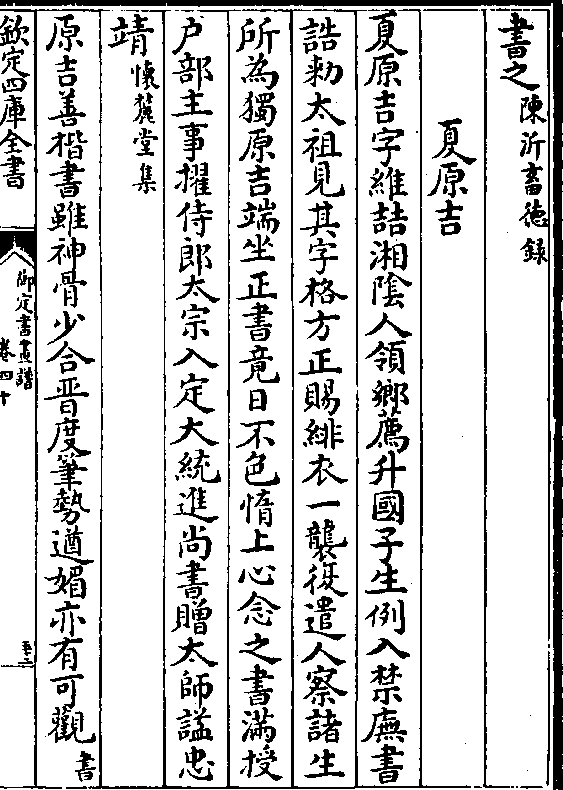 書之陳沂畜徳録
夏原吉
夏原吉字維喆湘陰人領鄉薦升國子生例入禁廡書
誥勅太祖見其字格方正賜緋衣一襲後遣人察諸生
所為獨原吉端坐正書竟日不色惰上心念之書滿授
户部主事擢侍郎太宗入定大統進尚書贈太師諡忠
靖懷麓堂集
原吉善楷書雖神骨少合晋度筆勢遒媚亦有可觀書
欽定四庫全書
御定書畫譜
卷四十
五十二